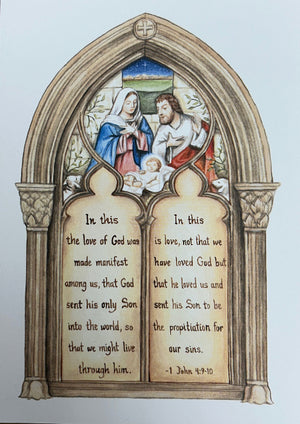 In this
the love of God was
made manifest
among us, that God
sent his only Son
into the world, so
that we might live
through him.
In this
is love, not that we
have loved God but
that he loved us and
sent his Son to be
the propitiation for
our sins.
-1 John 4:9-10